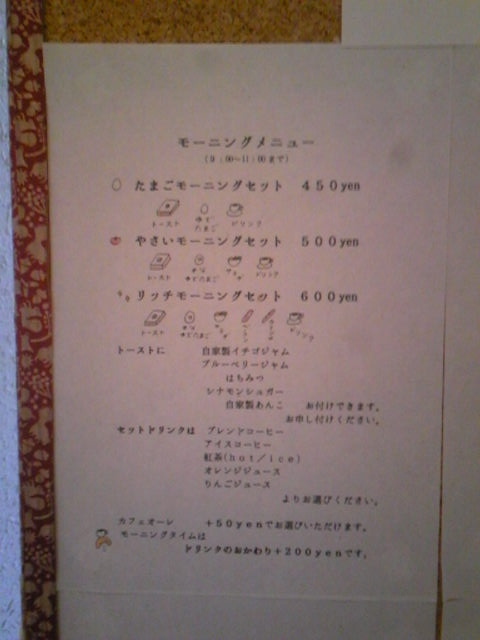 モーニングメニュー
(9:00~11:00まで)
たまごモーニングセット 450yen
トースト ゆでたまご ドリンク
やさいモーニングセット 500yen
トースト ゆでたまご サラダ ドリンク
リッチモーニングセット 600yen
トースト ゆでたまご サラダ ドリンク
トーストに 自家製イチゴジャム
ブルーベリージャム
はちみつ
シナモンシュガー
自家製あんこ お付けできます。
お申し付けください。
セットドリンクは ブレンドコーヒー
アイスコーヒー
紅茶(hot/ice)
オレンジジュース
りんごジュース
よりお選びください。
カフェオーレ +50yenでお選びいただけます。
モーニングタイムは
ドリンクのおかわり+200yenです。